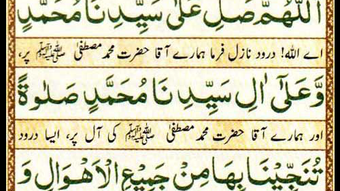 اَللّٰهُمَّ صَلِّ عَلٰى سَيِّدِنَا مُحَمَّدٍ
اے اللہ! درود نازل فرما ہمارے آقا حضرت محمد مصطفیٰ ﷺ پر،
وَّعَلٰٓى اٰلِ سَيِّدِنَا مُحَمَّدٍ صَلٰوةً
اور ہمارے آقا حضرت محمد مصطفیٰ ﷺ کی آل پر، ایسا درود
تُنَجِّيْنَا بِهَا مِنْ جَمِيْعِ الْاَهْوَالِ وَ